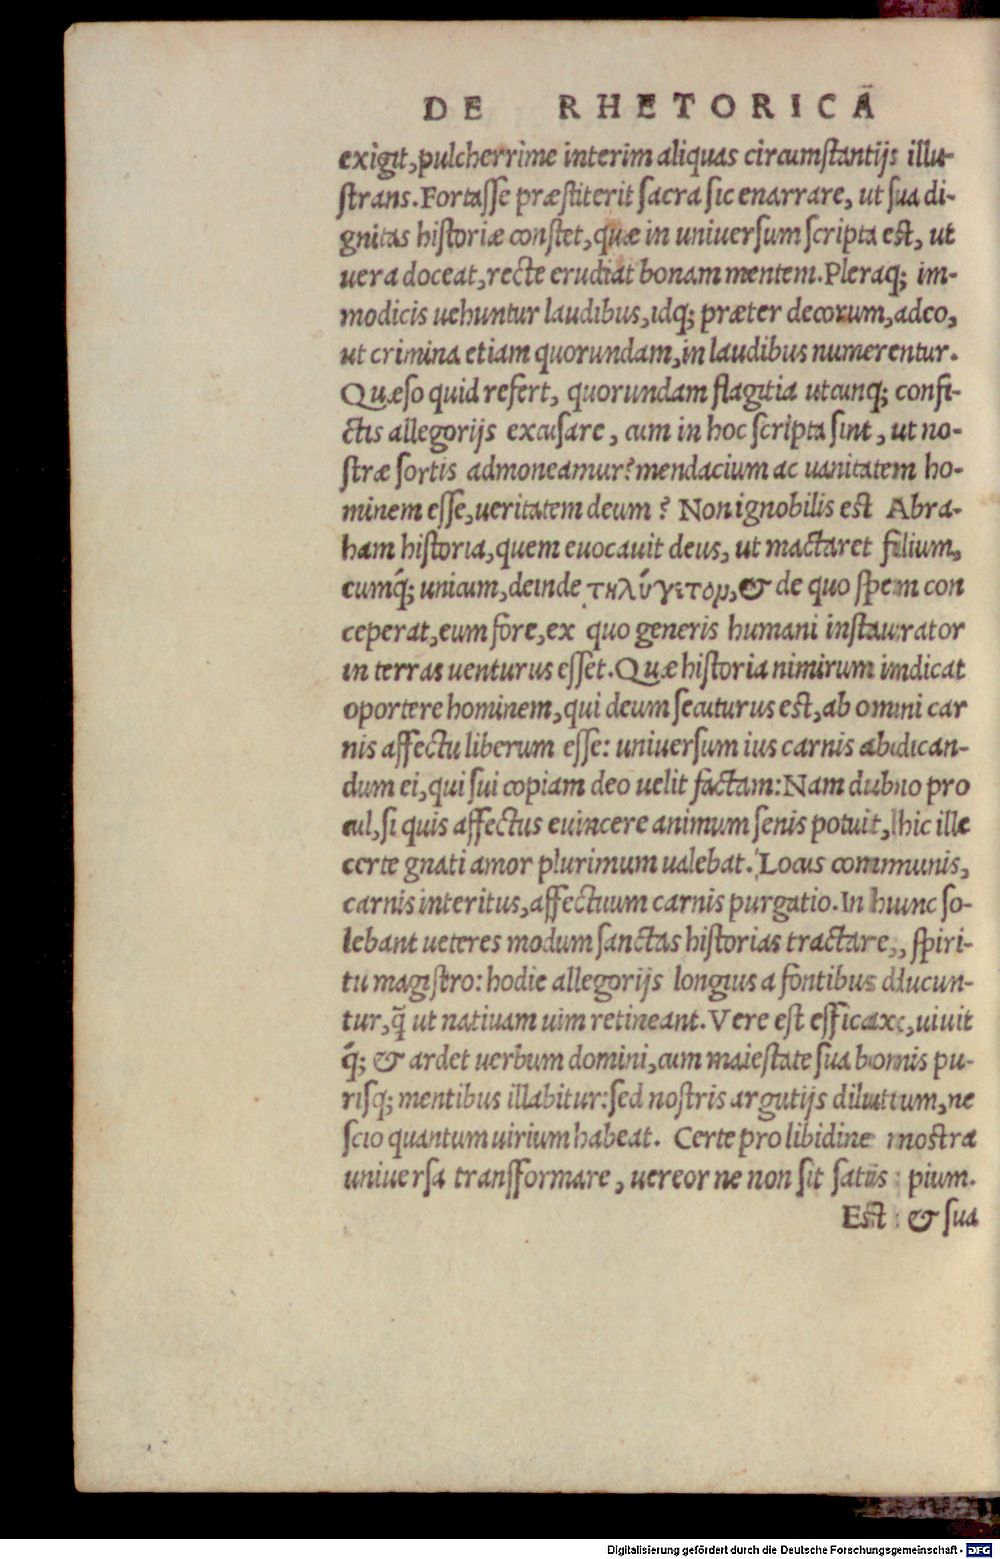 DE RHETORICA
exigit, pulcherrime interim aliquas circumstantijs illu-
strans. Fortasse præstiterit sacra sic enarrare, ut sua di-
gnitas historiæ constet, quæ in uniuersum scripta est, ut
uera doceat, recte erudiat bonam mentem. Pleraq; im-
modicis uehuntur laudibus, idq; præter decorum, adeo,
ut crimina etiam quorundam, in laudibus numerentur.
Quæso quid refert, quorundam flagitia utcunq; confi-
ctis allegorijs excusare, cum in hoc scripta sint, ut no-
stræ sortis admoneamur? mendacium ac uanitatem ho-
minem esse, ueritatem deum? Non ignobilis est Abra-
ham historia, quem euocauit deus, ut mactaret filium,
eumq́; unicum, deinde τηλύγετομ, & de quo spem con
ceperat, eum fore, ex quo generis humani instaurator
in terras uenturus esset. Quæ historia nimirum indicat
oportere hominem, qui deum secuturus est, ab omni car
nis affectu liberum esse: uniuersum ius carnis abdican-
dum ei, qui sui copiam deo uelit factam: Nam dubio pro
cul, si quis affectus euincere animum senis potuit, hic ille
certe gnati amor plurimum ualebat. Locus communis,
carnis interitus, affectuum carnis purgatio. In hunc so-
lebant ueteres modum sanctas historias tractare, spiri-
tu magistro: hodie allegorijs longius a fontibus ducun-
tur, q̃ ut natiuam uim retineant. Vere est efficax, uiuit
q́; & ardet uerbum domini, cum maiestate sua bonis pu-
risq; mentibus illabitur: sed nostris argutijs dilutum, ne
scio quantum uirium habeat. Certe pro libidine nostra
uniuersa transformare, uereor ne non sit satis pium.
Est & sua
Digitalisierung gefördert durch die Deutsche Forschungsgemeinschaft - DFG